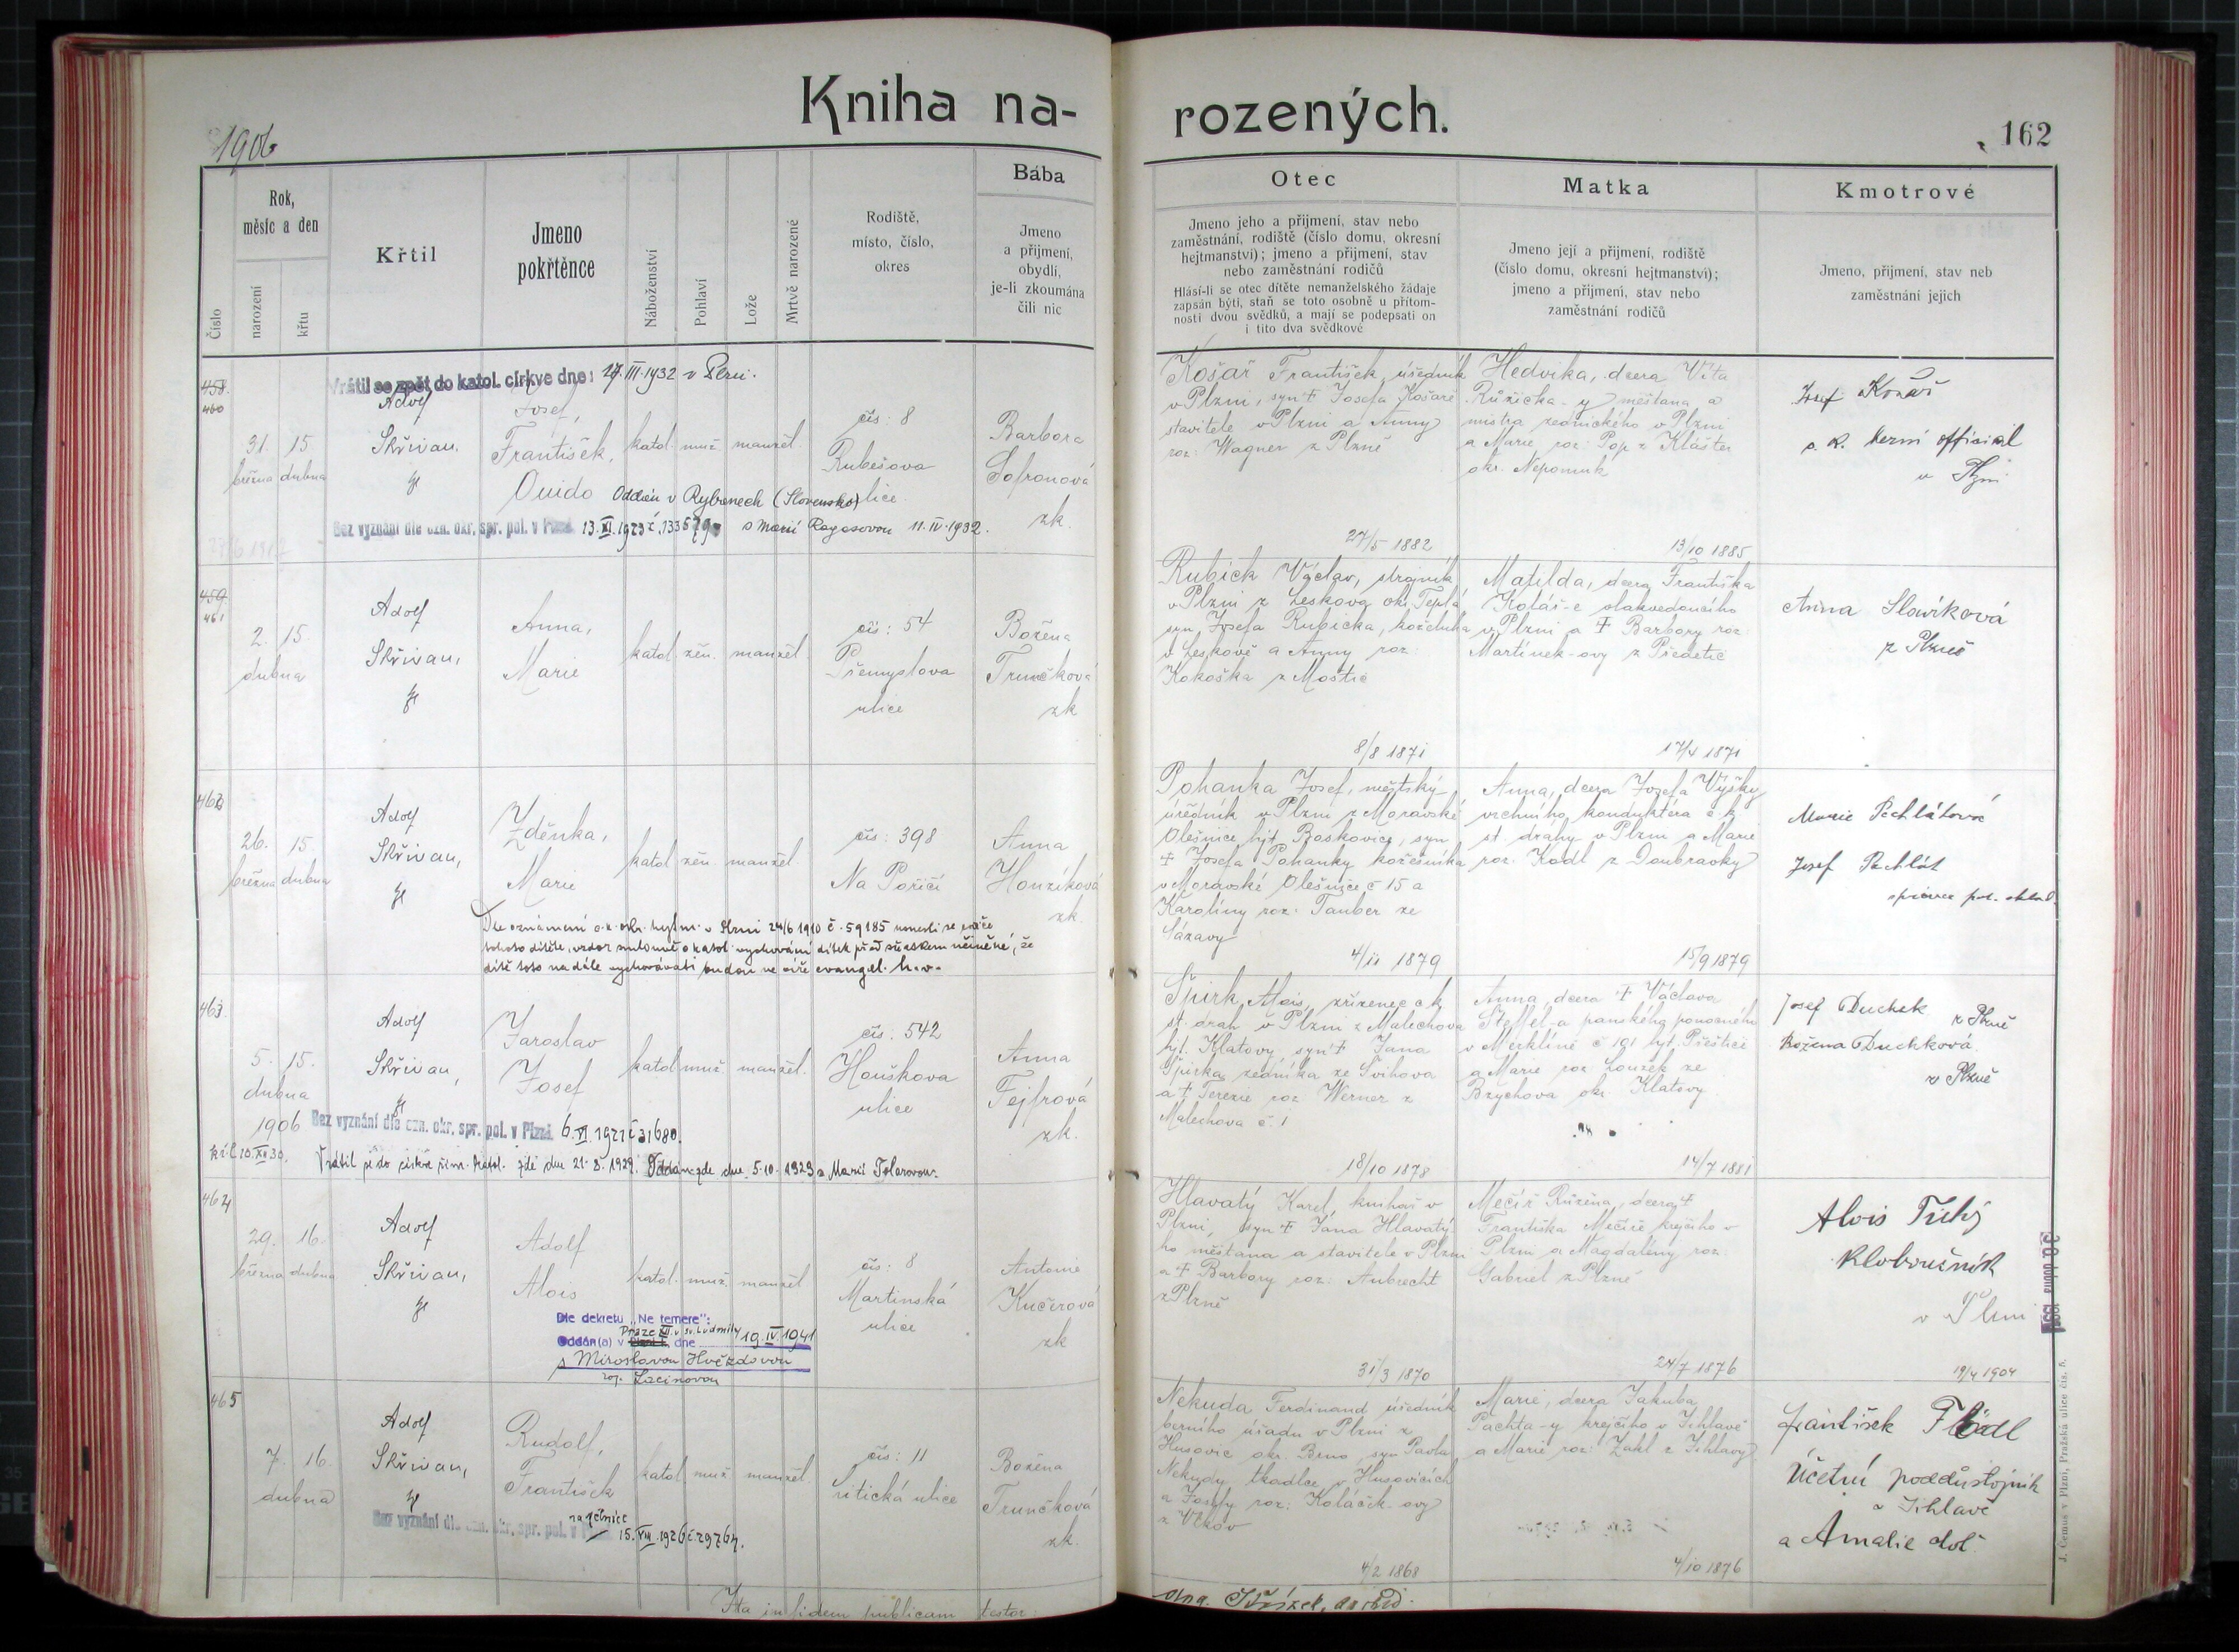 Kniha na-
rozených.
1906
162
Číslo
Rok,
měsíc a den
narození
křtu
Křtil
Jmeno
pokřtěnce
Náboženství
Pohlaví
Lože
Mrtvě narozené
Rodiště,
místo, číslo,
okres
Bába
Jmeno
a příjmení,
obydlí,
je-li zkoumána
čili nic
Otec
Jmeno jeho a příjmení, stav nebo
zaměstnání, rodiště (číslo domu, okresní
hejtmanství); jmeno a příjmení, stav
nebo zaměstnání rodičů
Hlásí-li se otec dítěte nemanželského žádaje
zapsán býti, staň se toto osobně u přítom-
nosti dvou svědků, a mají se podepsati on
i tito dva svědkové
Matka
Jmeno její a příjmení, rodiště
(číslo domu, okresní hejtmanství);
jmeno a příjmení, stav nebo
zaměstnání rodičů
Kmotrové
Jmeno, příjmení, stav neb
zaměstnání jejich
Vrátil se zpět do katol. církve dne: 17.III.1932 v Plzni.
458.
460
31. 15.
března dubna
Adolf
Skřivan,
Josef,
František,
Quido
katol. muž. manžel.
čís: 8
Rubešova
ulice.
Barbora
Sofronová
zk.
Oddán v Rybanech (Slovensko)
s Marií Ragasovou 11.IV.1932.
Bez vyznání dle ozn. okr. spr. pol. v Plzni 13.XI.1923
Košař František, úředník
v Plzni, syn † Josefa Košaře
stavitele v Plzni a Anny
roz: Wagner z Plzně
27/5 1882
Hedvika, dcera Víta
Růžička-y měšťana a
mistra zednického v Plzni
a Marie roz: Pop z Klášter
okr. Nepomuk
13/10 1885
Josef Košař
c. k. berní official
v Plzni
459
461
2. 15.
dubna
Adolf
Skřivan,
Anna,
Marie
katol. žen. manžel.
čís: 54
Přemyslova
ulice
Božena
Trunčková
zk
Rubick Václav, strojník
v Plzni z Leskova okr. Teplá,
syn Josefa Rubicka, koželuha
v Leskově a Anny roz:
Kokoška z Mostic
8/8 1871
Matilda, dcera Františka
Kolář-e vlakvedoucího
v Plzni a † Barbory roz:
Martinek-ovy z Předetic
17/4 1871
Anna Slowíková
z Plzně
462
26. 15.
března dubna
Adolf
Skřivan,
Zděnka,
Marie
katol. žen. manžel.
čís: 398
Na Poříčí
Anna
Honzíková
zk.
Dle oznámení c. k. okr. hejtm. v Plzni 24/6 1910 č. 59185 usnesli se rodiče
tohoto dítěte, vzdor smlouvě o katol. vychování dítek před sňatkem učiněné, že
dítě toto nadále vychovávati budou ve víře evangel. h. v.
Pohanka Josef, městský
úředník v Plzni z Moravské
Olešnice hejt. Boskovice, syn
† Josefa Pohanky kožešníka
v Moravské Olešnice č 15 a
Karoliny roz: Tauber ze
Sázavy
4/11 1879
Anna, dcera Josefa Vyšky
vrchního konduktéra c. k.
st. dráhy v Plzni a Marie
roz: Kodl z Doubravky
15/9 1879
Marie Pechlátová
Josef Pechlát
463
5. 15.
dubna
1906
Adolf
Skřivan,
Jaroslav
Josef
katol. muž. manžel.
čís: 542
Houškova
ulice
Anna
Fejfrová
zk.
Bez vyznání dle ozn. okr. spr. pol. v Plzni 6.VI.1921 č 31680.
Vrátil se do církve říms. katol. zde dne 21. 8. 1929. Oddán zde dne 5.10.1929 s Marií Tolarovou.
Špirk Alois, zřízenec c. k.
st. drah v Plzni z Malechova
hejt. Klatovy, syn † Jana
Špirka, zedníka ze Švihova
a † Terezie roz. Werner z
Malechova č. 1
18/10 1878
Anna, dcera † Václava
Steffel-a panského ponocného
v Merklíně č 191 hejt. Přeštice
a Marie roz Louzek ze
Bzychova okr. Klatovy
14/7 1881
Josef Duchek z Plzně
Božena Duchková
z Plzně
464
29. 16.
března dubna
Adolf
Skřivan,
Adolf
Alois
katol. muž. manžel
čís: 8
Martinská
ulice
Antonie
Kučerová
zk
Dle dekretu „Ne temere":
Oddán(a) v Praze XII. u sv. Ludmily dne 19.IV.1941
s Miroslavou Hvězdovou
roz. Lacinovou
Hlavatý Karel, knihař v
Plzni, syn † Jana Hlavatý-
ho měšťana a stavitele v Plzni
a † Barbory roz: Aubrecht
z Plzně
31/3 1870
Mečíř Růžena, dcera †
Františka Mečíře krejčího v
Plzni a Magdalény roz:
Gabriel z Plzně
24/7 1876
Alois Tichý
kloboučník
v Plzni
19/4 1904
465
7. 16.
dubna
Adolf
Skřivan,
Rudolf,
František
katol. muž. manžel.
čís: 11
ulice
Božena
Trunčková
zk.
Bez vyznání dle ozn. okr. spr. pol. 15.VII.1926 č 29764.
Nekuda Ferdinand úředník
berního úřadu v Plzni z
Husovic okr. Brno, syn Pavla
Nekudy tkadlce v Husovicích
a Josefy roz: Koláčik-ovy
z Vlkov
4/2 1868
Marie, dcera Jakuba
Pachta-y krejčího v Jihlavě
a Marie roz: Zahl z Jihlavy
4/10 1876
František
Účetní poddůstojník
v Jihlavě
a Amalie
Ita in fidem publicam testor:
J. Čemus v Plzni, Pražská ulice čís. 5.